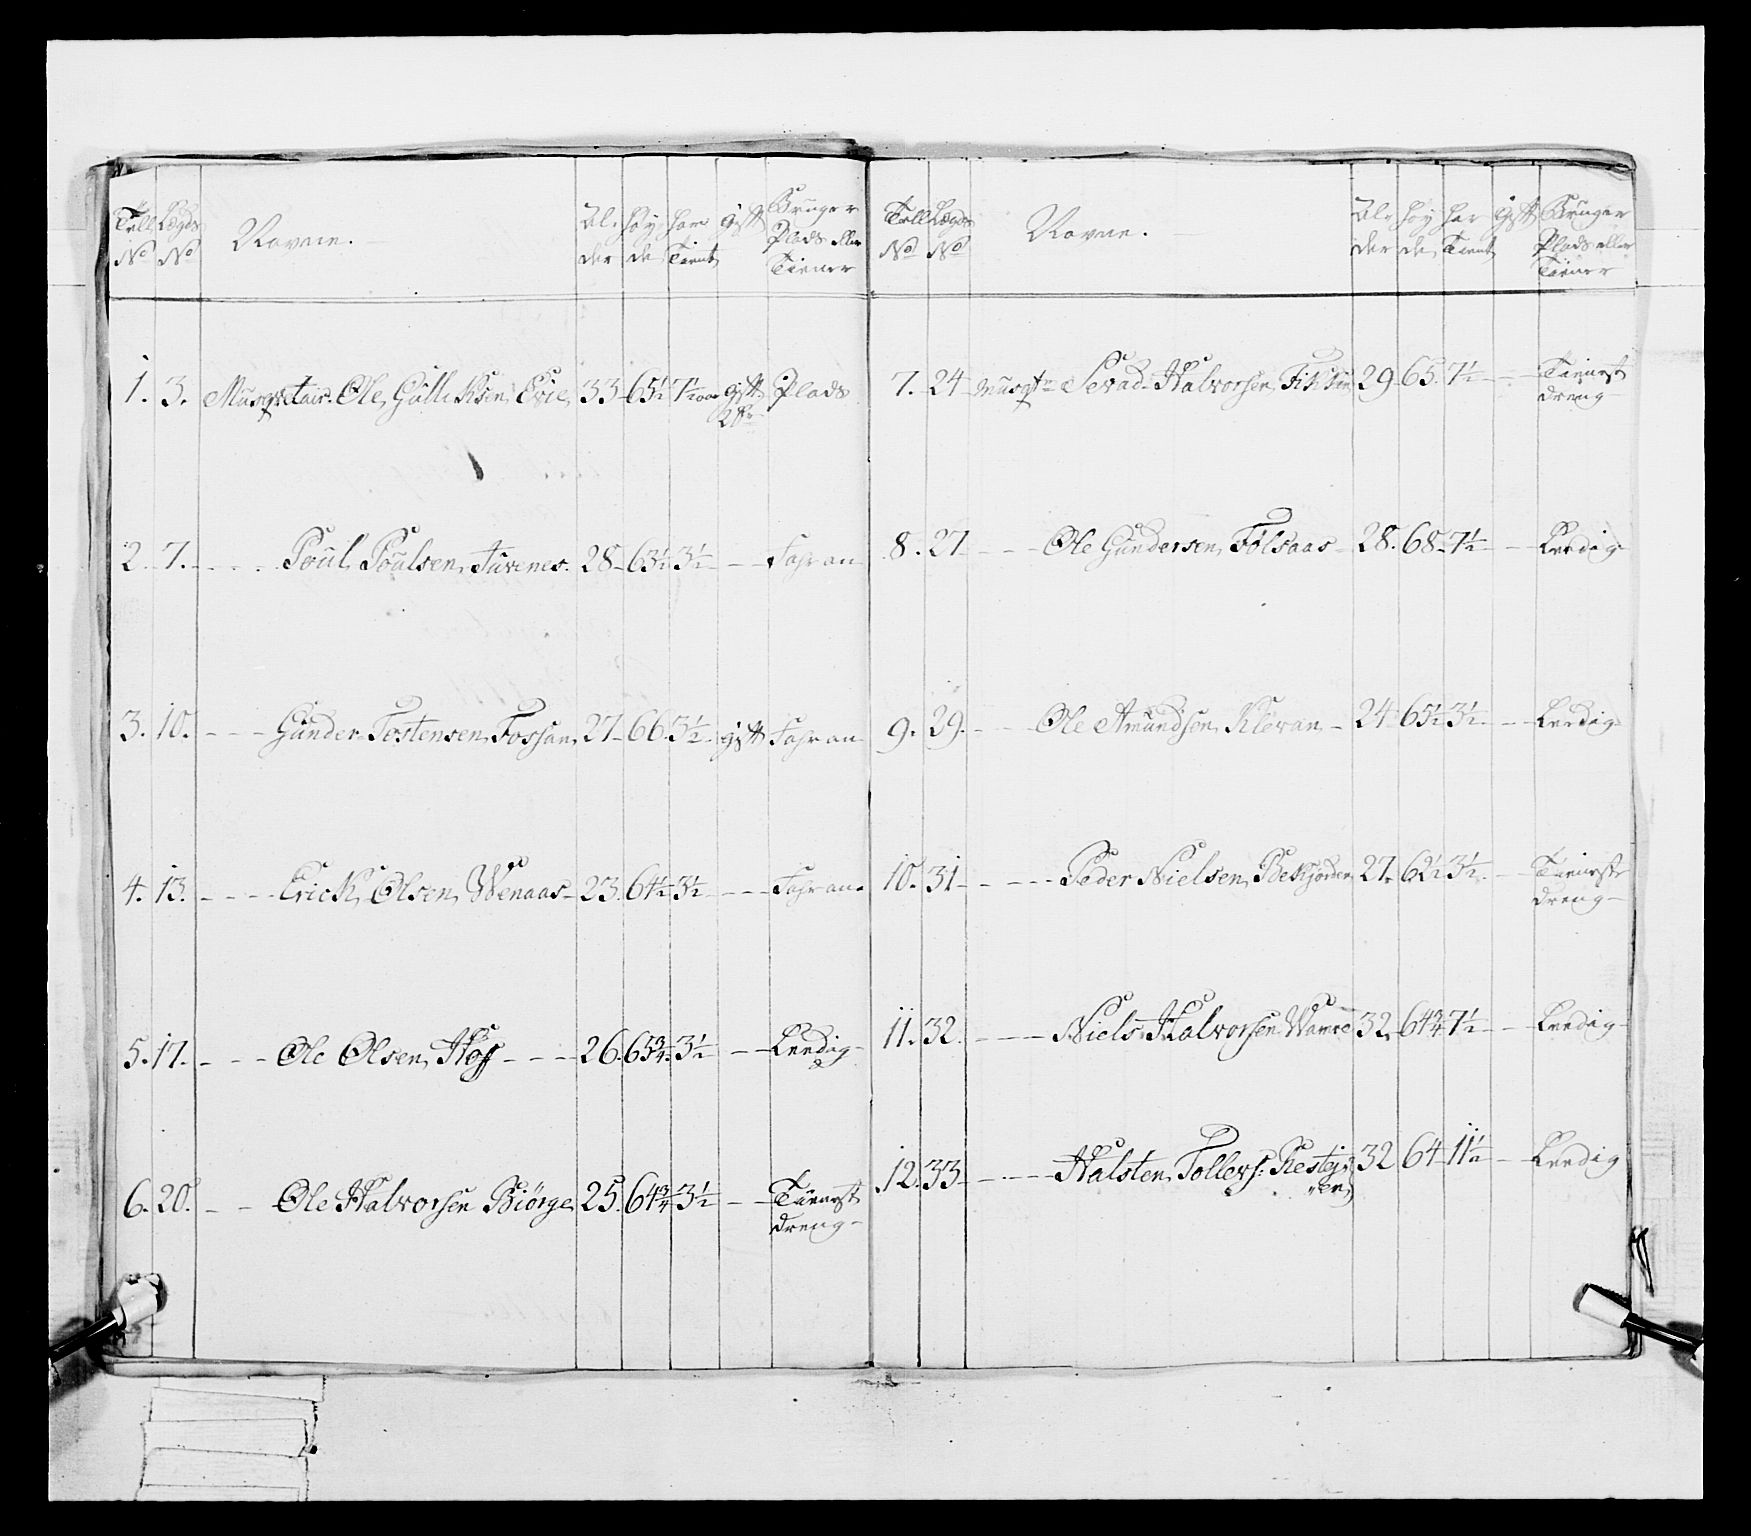 Tall No Lægds No Navne. Alder høyde har Tient gift Bruger Plads eller Tiener
1. 3. Musqvetair. Ole Gullichsen Evie 33 65½ 7½ aar gift Plads
2. 7. Poul Poulsen Tuvenes. 28 63½ 3½ Fahran
3. 10. Gunder Tostensen Fossan 27 66 3½ gift Fahran
4. 13. Erich Olsen Wenaas 23 64½ 3½ Fahran
5. 17. Ole Olsen 26. 65¾ 3½ Leedig
6. 20. Ole Halvorsen Biörge 25. 64¾ 3½ Tienest
dreng
Tall No Lægds No Navne. Alder høyde har Tient gift Bruger Plads eller Tiener
7. 24 Musqt Sevad Halvorsen 29 65 7½ Tienest
dreng
8. 27 Ole Gundersen Følsaas 28. 68 7½ Leedig
9. 29. Ole Amundsen Klevan 24 65½ 3½ Leedig
10. 31 Peder Nielsen 27. 62½ 3½ Tieneste
dreng
11. 32. Niels Halvorsen 32. 64¾ 7½ Leedig
12. 33 Halsten Tollevs: 32 64 11½ Leedig